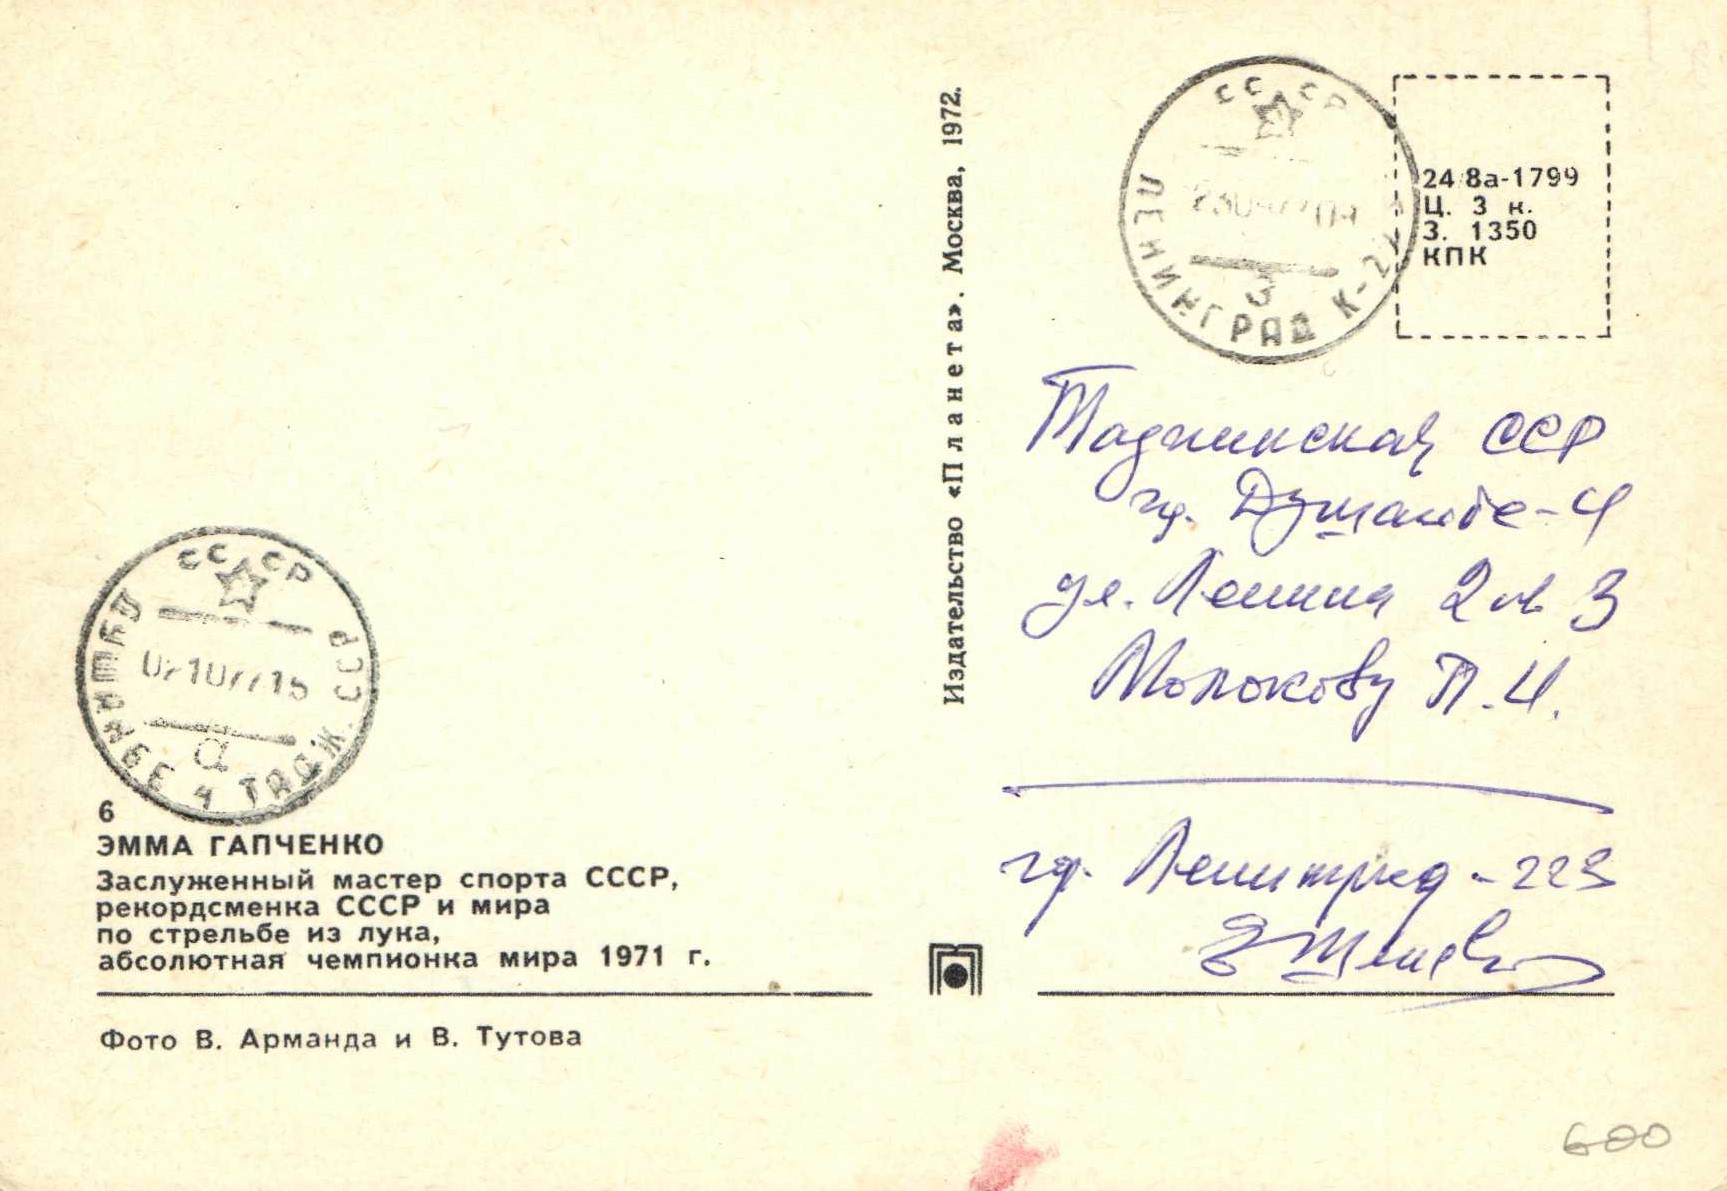 СССР
ЛЕНИНГРАД К-22
3
24/8а-1799
Ц. 3 к.
З. 1350
КПК
Издательство «Планета». Москва, 1972.
Таджикская ССР
гр. Душанбе-4
ул. Ленина 2 кв 3
Молокову П.И.
гр. Ленинград-223
СССР
ДУШАНБЕ 4 ТАДЖ. ССР
02107715
а
6
ЭММА ГАПЧЕНКО
Заслуженный мастер спорта СССР,
рекордсменка СССР и мира
по стрельбе из лука,
абсолютная чемпионка мира 1971 г.
Фото В. Арманда и В. Тутова
600